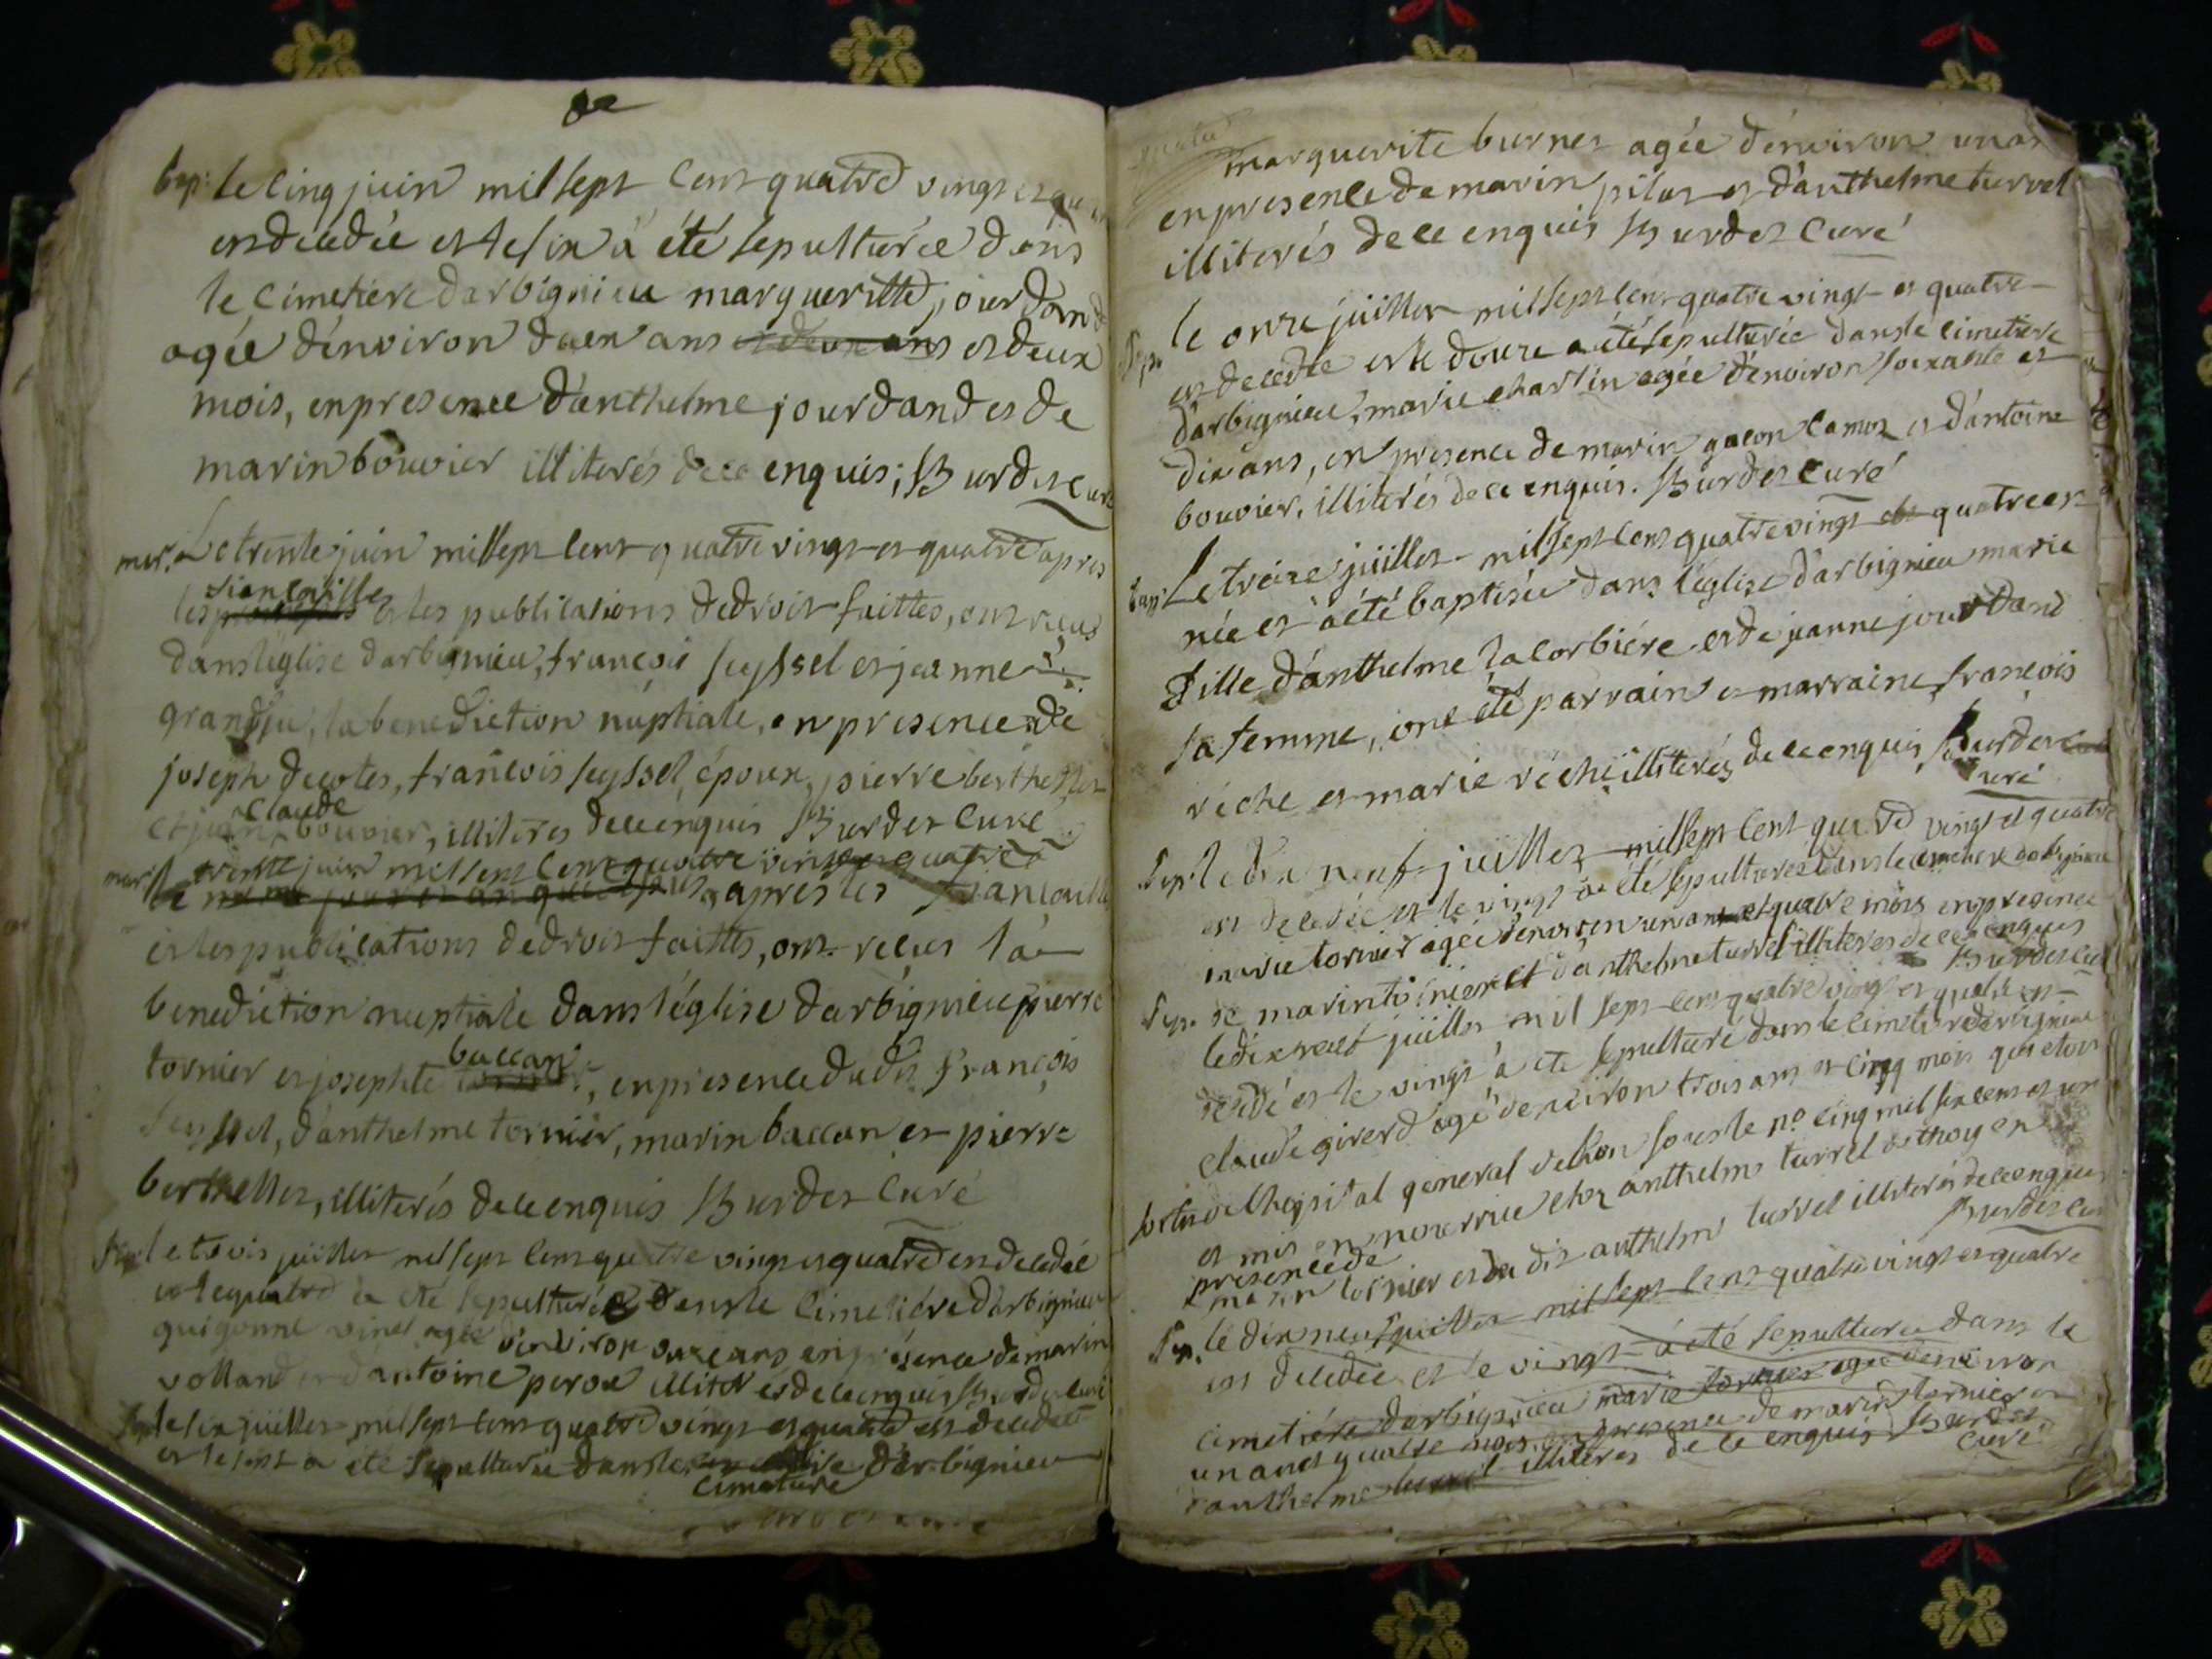 Sep: le cinq juin mil sept cent quatre vingt et
est décédée et le six a été sepulturée dans
le cimetiere darbignieu margueritte jourdand
agée d'environ deux ans et deux ans et deux
mois, en presence d'anthelme jourdand et de
marin bouvier illiterés de ce enquis; Burdet curé
mar. Le trente juin mil sept cent quatre vingt et quatre apres
fiancailles
les et les publications de droit faittes, ont recus
dans l'eglise darbignieu, françois seyssel et jeanne
grandju, la benediction nuptiale, en presence de
joseph decotes, françois seyssel, époux, pierre berthellet
claude
et jean bouvier, illiterés de ce enquis Burdet curé
mar. le trente juin mil sept cent quatre vingt et quatre
le même jour et an que dessus, apres les fiancailles
et les publications de droit faittes, ont recus la
benediction nuptiale dans l'église darbignieu pierre
baccan
tornier et josephte tornier, en presence dudit françois
seyssel, d'anthelme tornier, marin baccan et pierre
berthellet, illiterés de ce enquis Burdet curé
Sep. le trois juillet mil sept cent quatre vingt et quatre est décédée
et le quatre a été sepulturée dans le cimetiére d'arbignieu
guigonne vinet agée d'environ onze ans en présence de marin
volland et d'antoine peroux illiterés de ce enquis Burdet curé
Sep. le six juillet mil sept cent quatre vingt et quatre est décédée
et le sept a été sepulturée dans le d'arbignieu
cimetiere
marguerite burnet agée d'environ un an
en presence de marin pilat et d'anthelme turrel
illiterés de ce enquis Burdet curé
Sep. le onze juillet mil sept cent quatre vingt et quatre
est decedée et le douze a été sepulturée dans le cimetiere
d'arbignieu, marie charlin agée d'environ soixante et
dix ans, en presence de marin gacon camoz et d'antoine
bouvier, illiterés de ce enquis. Burdet curé
bap. Le treize juillet mil sept cent quatre vingt et quatre est
née et a été baptisée dans l'église d'arbignieu marie
Fille d'anthelme lacorbiére et de jeanne jourdand
sa femme, ont été parrain et marraine, françois
réche et marie réche illiterés de ce enquis Burdet
curé
Sep. le dix neuf juillet mil sept cent quatre vingt et quatre
est decedée et le vingt a été sepulturée dans le cimetiere darbignieu
marie tornier agée d'environ un an et quatre mois en presence
de marin tornier et d'anthelme turrel illiterés de ce enquis
Burdet curé
Sep. le dix neuf juillet mil sept cent quatre vingt et quatre est
décédé et le vingt a été sepulturé dans le cimetiere d'arbignieu
claude girerd agé d'environ trois ans et cinq mois qui étoit
sorti de l'hopital general de lion sous le no cinq mil six cent et un
et mis en nourrice chez anthelme turrel de thoy en
presence de
marin tornier et du dit anthelme turrel illiterés de ce enquis
Burdet curé
Sep. le dix neuf juillet mil sept cent quatre vingt et quatre
est decedée et le vingt a été sepulturée dans le
cimetiére darbignieu marie tornier agée d'environ
un an et quatre mois, en presence de marin tornier et
d'anthelme turrel illiterés de ce enquis Burdet
curé